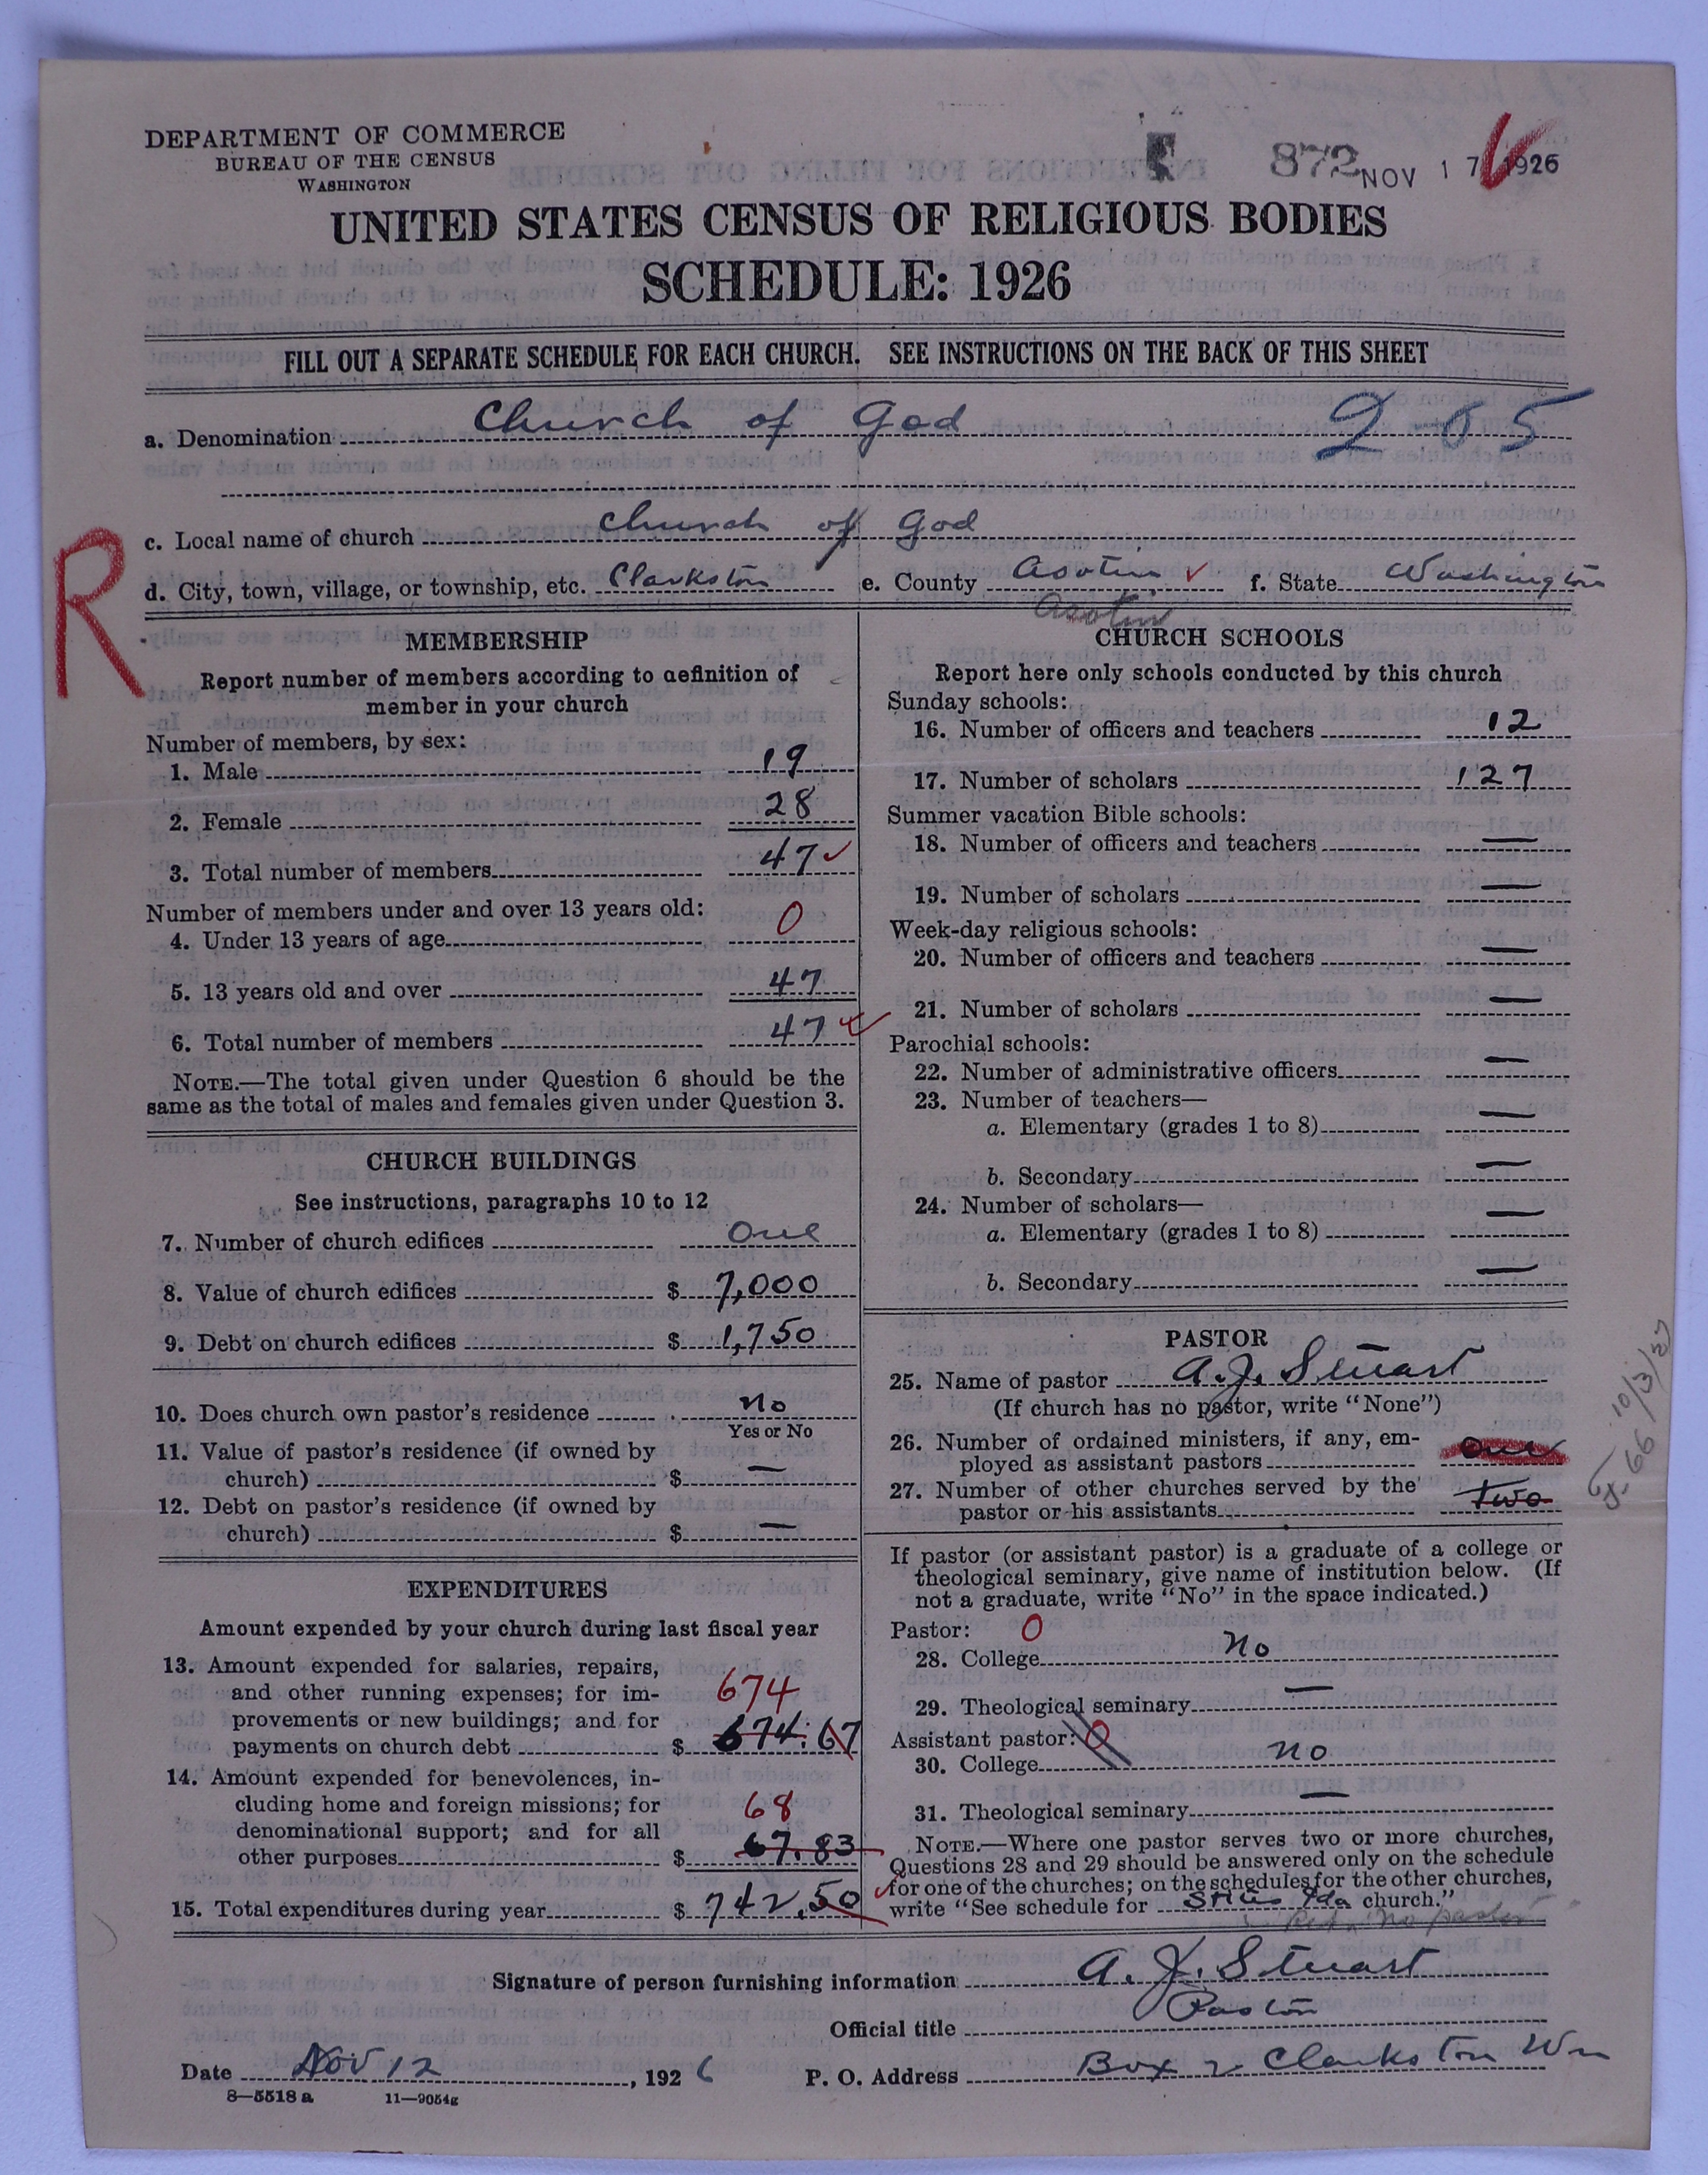 DEPARTMENT OF COMMERCE
BUREAU OF THE CENSUS
WASHINGTON
872 NOV 17 1926
UNITED STATES CENSUS OF RELIGIOUS BODIES
SCHEDULE: 1926
FILL OUT A SEPARATE SCHEDULE FOR EACH CHURCH. SEE INSTRUCTIONS ON THE BACK OF THIS SHEET
a. Denomination Church of God 2-05
c. Local name of church Church of God
R
d. City, town, village, or township, etc. Clarkston e. County Asotin f. State Washington
Asotin
MEMBERSHIP
Report number of members according to definition of
member in your church
Number of members, by sex:
1. Male 19
2. Female 28
3. Total number of members 47
Number of members under and over 13 years old:
4. Under 13 years of age 0
5. 13 years old and over 47
6. Total number of members 47
NOTE.—The total given under Question 6 should be the
same as the total of males and females given under Question 3.
CHURCH BUILDINGS
See instructions, paragraphs 10 to 12
7. Number of church edifices One
8. Value of church edifices $ 7,000
9. Debt on church edifices $ 1,750
10. Does church own pastor's residence No
Yes or No
11. Value of pastor's residence (if owned by
church) $ —
12. Debt on pastor's residence (if owned by
church) $ —
EXPENDITURES
Amount expended by your church during last fiscal year
13. Amount expended for salaries, repairs,
and other running expenses; for im-
provements or new buildings; and for
674
payments on church debt $ 674.67
14. Amount expended for benevolences, in-
cluding home and foreign missions; for
68
denominational support; and for all
other purposes $ 67.83
15. Total expenditures during year $ 742.50
CHURCH SCHOOLS
Report here only schools conducted by this church
Sunday schools:
16. Number of officers and teachers 12
17. Number of scholars 127
Summer vacation Bible schools:
18. Number of officers and teachers —
19. Number of scholars —
Week-day religious schools:
20. Number of officers and teachers —
21. Number of scholars —
Parochial schools:
22. Number of administrative officers —
23. Number of teachers—
a. Elementary (grades 1 to 8) —
b. Secondary —
24. Number of scholars—
a. Elementary (grades 1 to 8) —
b. Secondary —
PASTOR
25. Name of pastor A. J. Stuart
(If church has no pastor, write "None")
26. Number of ordained ministers, if any, em-
ployed as assistant pastors one
27. Number of other churches served by the
pastor or his assistants two
10/3/27
If pastor (or assistant pastor) is a graduate of a college or
theological seminary, give name of institution below. (If
not a graduate, write "No" in the space indicated.)
Pastor: 0
28. College No
29. Theological seminary —
Assistant pastor: 0
30. College no
31. Theological seminary —
NOTE.—Where one pastor serves two or more churches,
Questions 28 and 29 should be answered only on the schedule
for one of the churches; on the schedules for the other churches,
write "See schedule for Stites Ida church."
no pastor
Signature of person furnishing information A. J. Stuart
Official title Pastor
Date Nov 12, 1926 P. O. Address Box 2 Clarkston Wn
8—5518 a 11—9054g